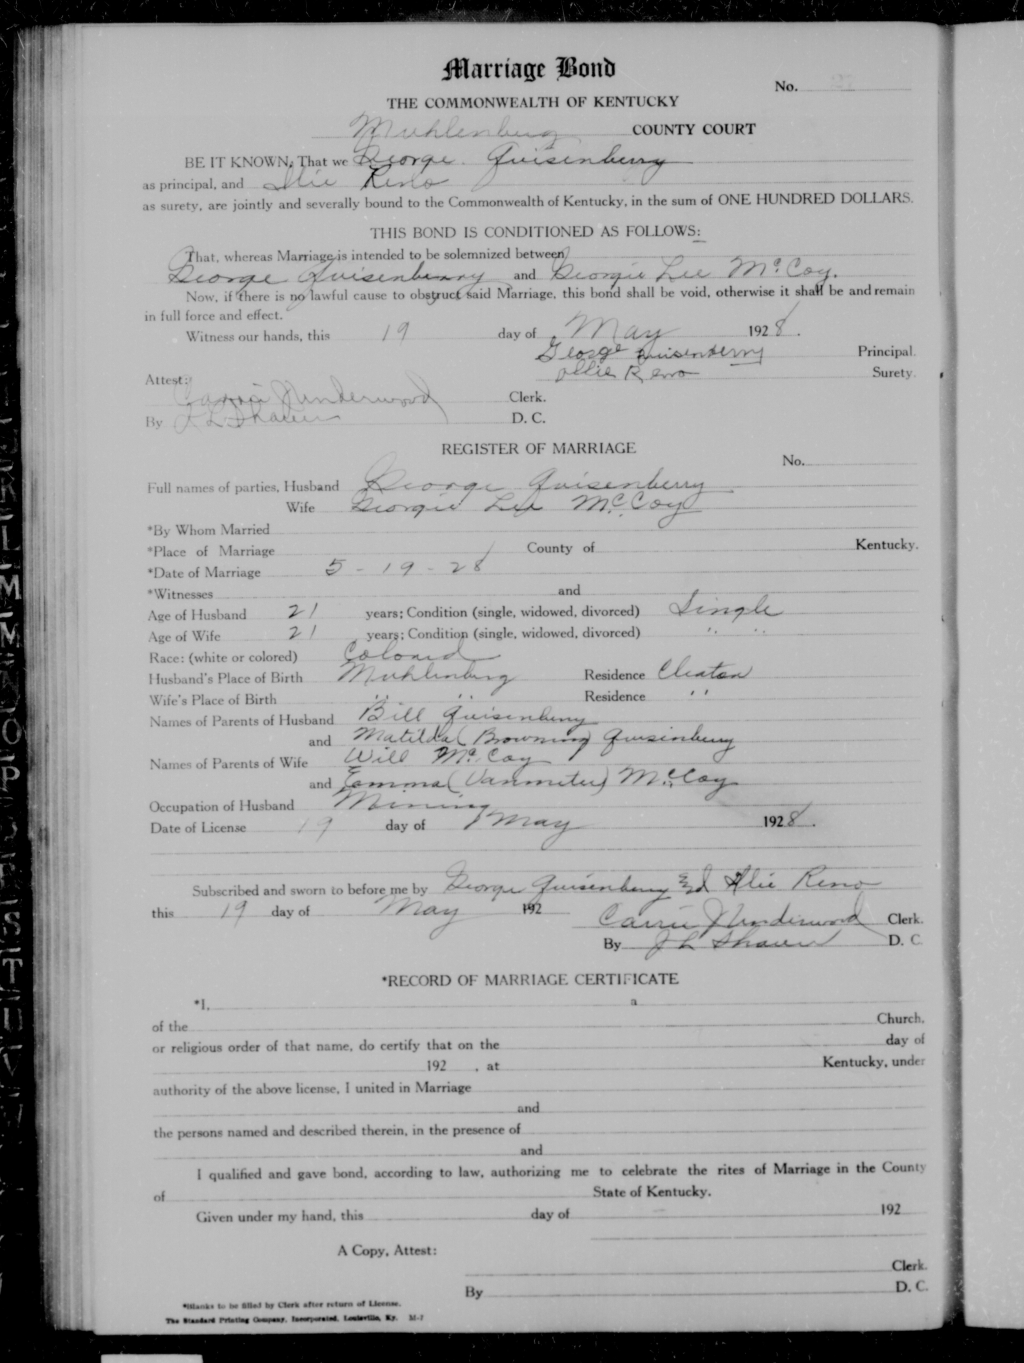 Marriage Bond
No.
THE COMMONWEALTH OF KENTUCKY
Muhlenberg COUNTY COURT
BE IT KNOWN, That we George Quisenberry
as principal, and Ollie Reno
as surety, are jointly and severally bound to the Commonwealth of Kentucky, in the sum of ONE HUNDRED DOLLARS.
THIS BOND IS CONDITIONED AS FOLLOWS:
That, whereas Marriage is intended to be solemnized between
George Quisenberry and Georgie Lee McCoy.
Now, if there is no lawful cause to obstruct said Marriage, this bond shall be void, otherwise it shall be and remain
in full force and effect.
Witness our hands, this 19 day of May 1928.
George Quisenberry Principal.
Ollie Reno Surety.
Attest:
Carrie J Underwood Clerk.
By J L Shaver D. C.
REGISTER OF MARRIAGE
No.
Full names of parties, Husband George Quisenberry
Wife Georgie Lee McCoy
*By Whom Married
*Place of Marriage County of Kentucky.
*Date of Marriage 5-19-28
*Witnesses and
Age of Husband 21 years; Condition (single, widowed, divorced) Single
Age of Wife 21 years; Condition (single, widowed, divorced) " "
Race: (white or colored) Colored
Husband's Place of Birth Muhlenberg Residence Cleaton
Wife's Place of Birth " " Residence "
Names of Parents of Husband Bill Quisenberry
and Matilda (Browning) Quisinberry
Names of Parents of Wife Will McCoy
and Emma (Vanmeter) McCoy
Occupation of Husband Mining
Date of License 19 day of May 1928.
Subscribed and sworn to before me by George Quisenberry and Ollie Reno
this 19 day of May 192
Carrie J Underwood Clerk.
By J L Shaver D. C.
*RECORD OF MARRIAGE CERTIFICATE
*I, a
of the Church,
or religious order of that name, do certify that on the day of
192 , at Kentucky, under
authority of the above license, I united in Marriage
and
the persons named and described therein, in the presence of
and
I qualified and gave bond, according to law, authorizing me to celebrate the rites of Marriage in the County
of State of Kentucky.
Given under my hand, this day of 192
A Copy, Attest:
Clerk.
By D. C.
*Blanks to be filled by Clerk after return of License.
The Standard Printing Company, Incorporated, Louisville, Ky. M-7